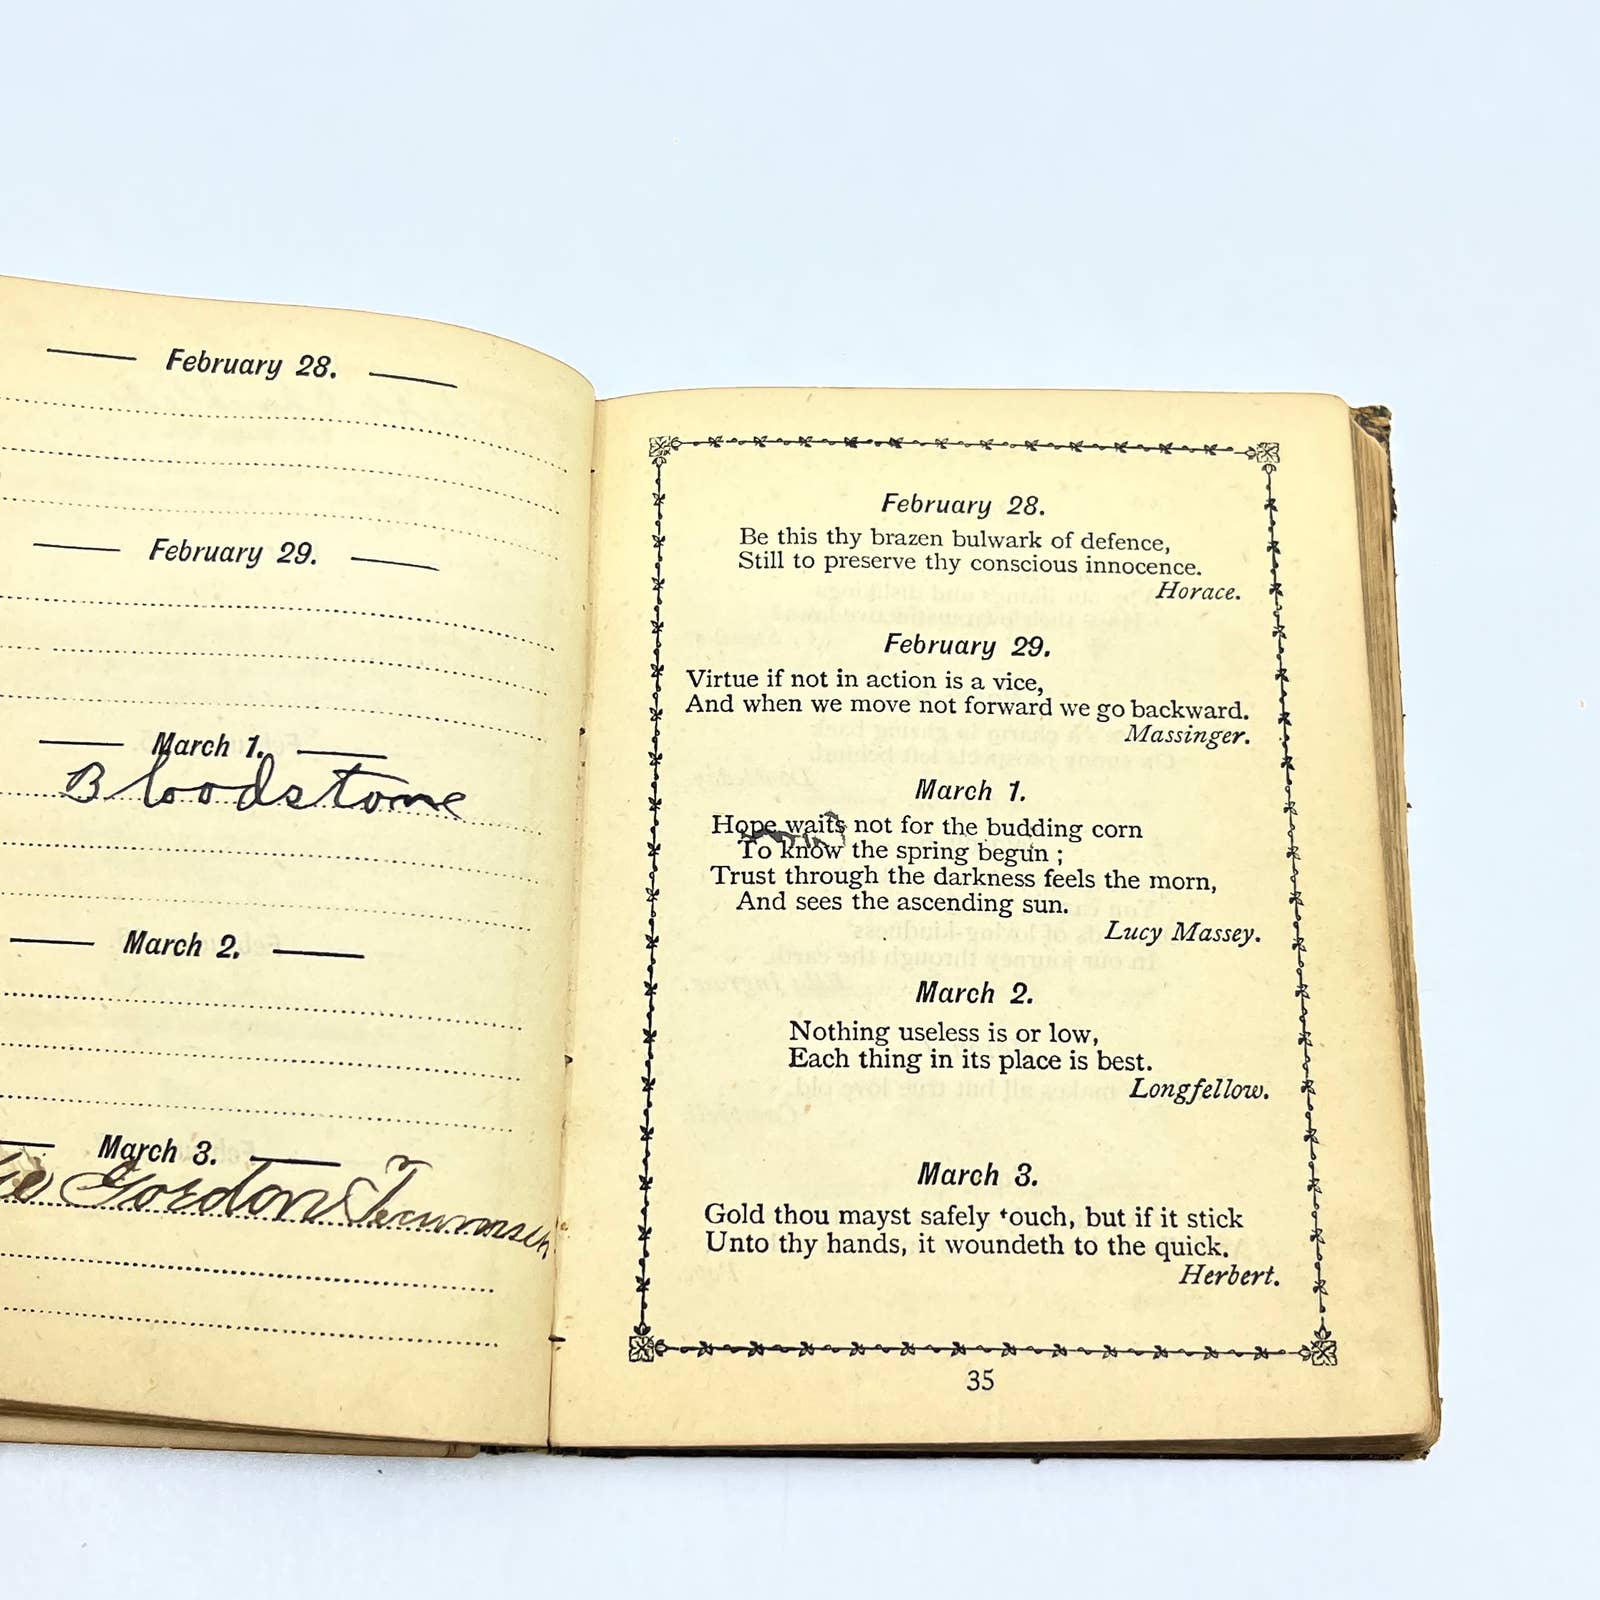 February 28.
February 29.
March 1.
Bloodstone
March 2.
March 3.
Gordon Tecumseh
February 28.
Be this thy brazen bulwark of defence,
Still to preserve thy conscious innocence.
Horace.
February 29.
Virtue if not in action is a vice,
And when we move not forward we go backward.
Massinger.
March 1.
Hope waits not for the budding corn
To know the spring begun ;
Trust through the darkness feels the morn,
And sees the ascending sun.
Lucy Massey.
March 2.
Nothing useless is or low,
Each thing in its place is best.
Longfellow.
March 3.
Gold thou mayst safely touch, but if it stick
Unto thy hands, it woundeth to the quick.
Herbert.
35